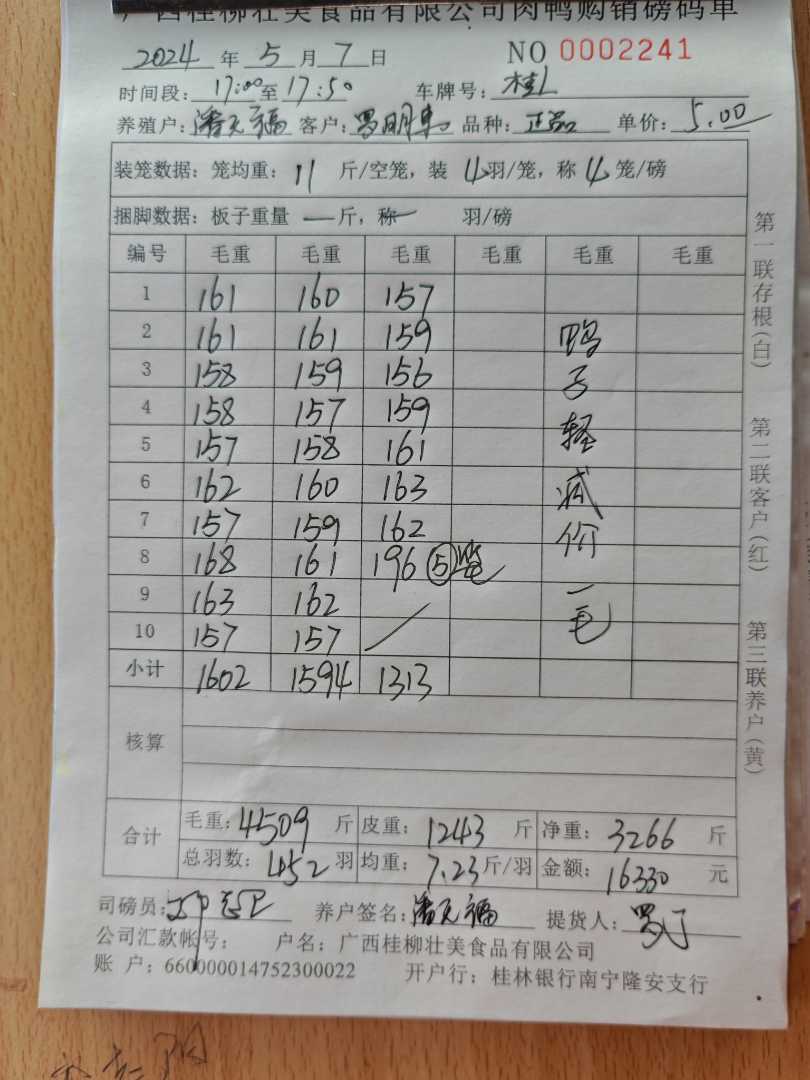 广西桂柳壮美食品有限公司肉鸭购销磅码单
2024 年 5 月 7 日 NO 0002241
时间段: 17:00 至 17:50 车牌号: 桂L
养殖户: 潘元福 客户: 罗明 品种: 正品 单价: 5.00
装笼数据: 笼均重: 11 斤/空笼, 装 4 羽/笼, 称 4 笼/磅
捆脚数据: 板子重量 一 斤, 称一 羽/磅
编号 毛重 毛重 毛重 毛重 毛重 毛重
1 161 160 157
2 161 161 159 鸭
3 158 159 156 子
4 158 157 159 轻
5 157 158 161
6 162 160 163 减
7 157 159 162 价
8 168 161 196 ⑤笼
9 163 162 一
10 157 157 毛
小计 1602 1594 1313
核算
合计 毛重: 4509 斤 皮重: 1243 斤 净重: 3266 斤
总羽数: 452 羽 均重: 7.23 斤/羽 金额: 16330 元
司磅员: 养户签名: 潘元福 提货人: 罗
公司汇款帐号: 户名: 广西桂柳壮美食品有限公司
账 户: 660000014752300022 开户行: 桂林银行南宁隆安支行
第一联存根(白)
第二联客户(红)
第三联养户(黄)